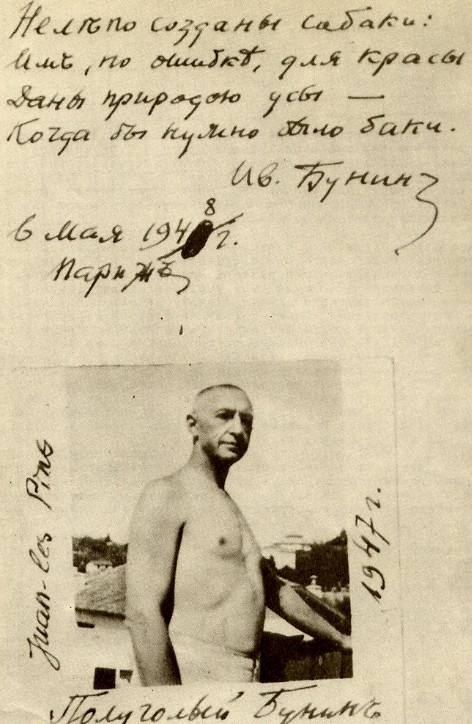 Нелѣпо созданы собаки:
Имъ, по ошибкѣ, для красы
Даны природою усы —
Когда бы нужно было баки.
Ив. Бунинъ
6 Мая 1948 г.
Парижъ
Juan-les Pins
1947 г.
Полуголый Бунинъ